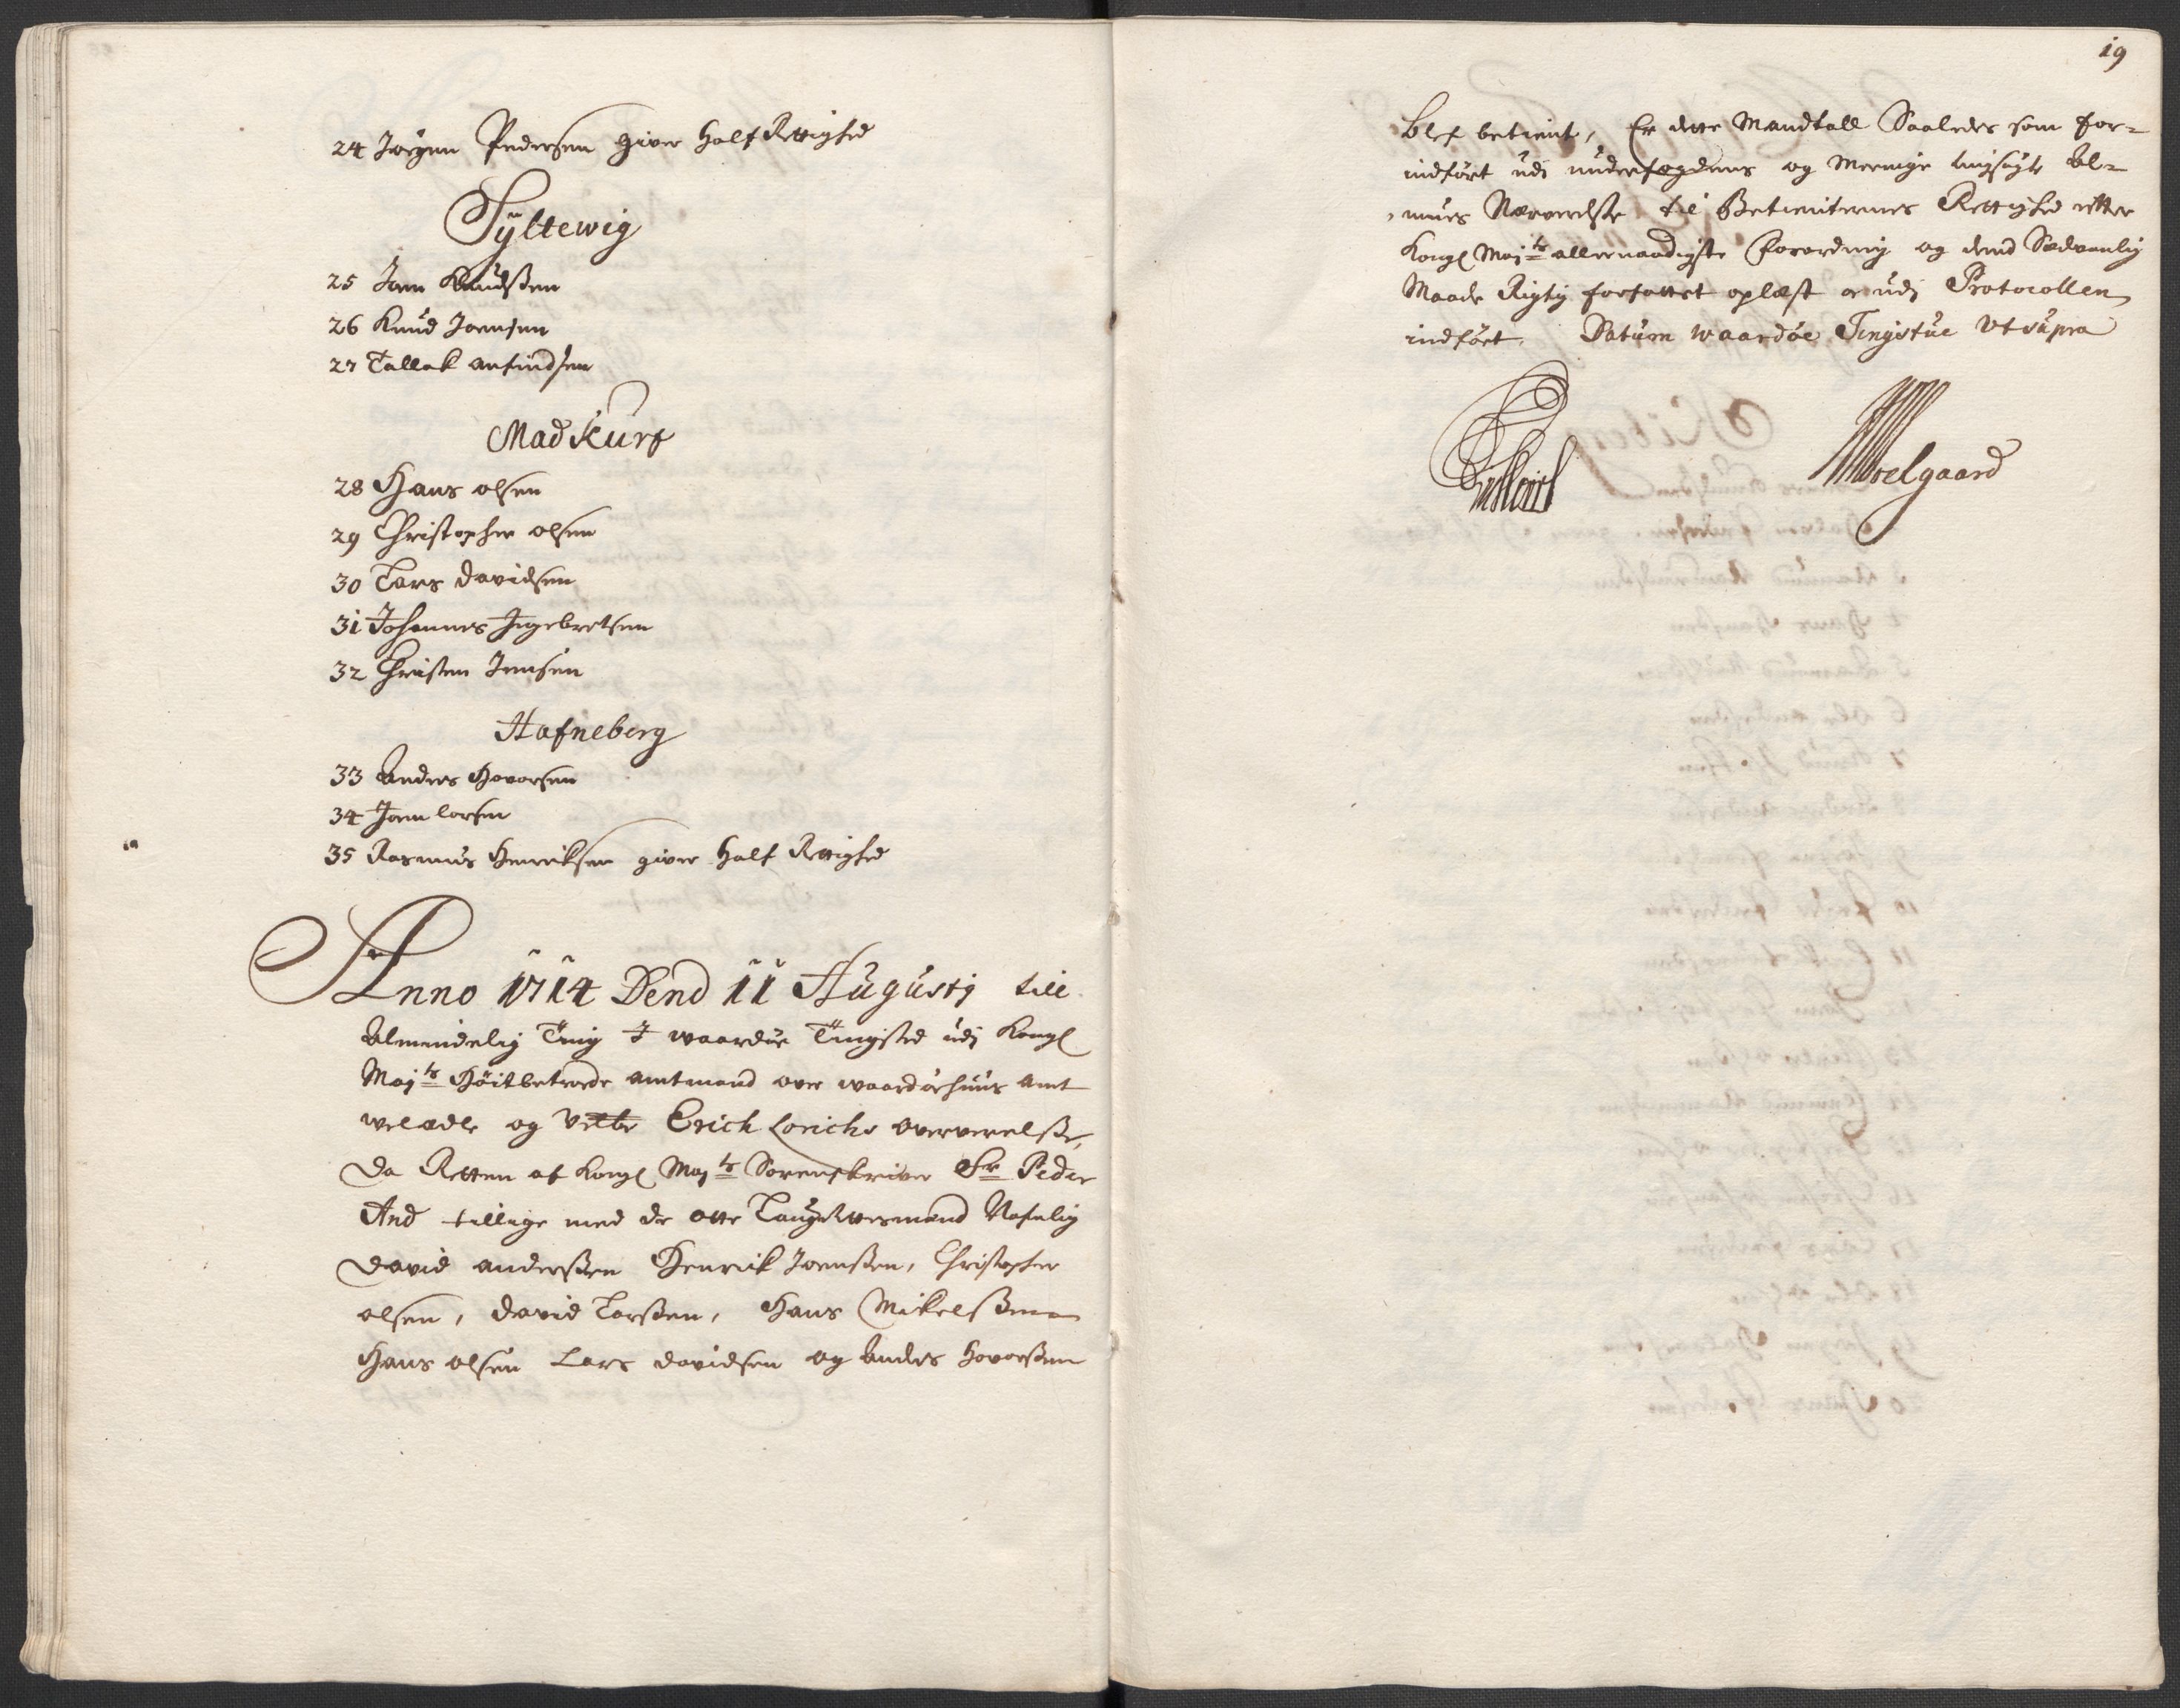 24 Jørgen Pedersen giver Half Rettighed
Syltewig
25 Joen Knudßen
26 Knud Joensen
27 Tallak anfindsen
Madkurf
28 Hans olsen
29 Christopher olsen
30 Lars Davidsen
31 Johannes Ingebretsen
32 Christen Jensen
Hafneberg
33 Anders Hovorsen
34 Joen lorsen
35 Rasmus Henriksen giver Half Rettighed
Anno 1714 Dend 11 Augustj till
Almindelig Ting I waardøe Tingsted udj Kongl
Maj:ts Høitbetroede amtmand over waardøehuus amt
welædle og Erich Lorichs oververelße,
Da Retten af Kongl Maj:ts Sorenskriver Sr Peder
And tillige med de otte Laugrettesmænd Nafnlig
David anderßen Henrik Joenßen, Christopher
olsen, David Larßen, Hans Mikelßen
Hans olsen Lars davidsen og Anders Hovorßen
19
blef betient, Er dette Mandtall Saaledes som for-
indført udj underfogdens og Meenige tingsøgte Al-
mues Nærverelße til Betienternes Rettighed efter
Kongl Maj:ts allernaadigste Forordning og dend Sædvanlig
Maade Rigtig forfattet oplæst og udj Protocollen
indført. Datum waardøe Tingstue Ut supra